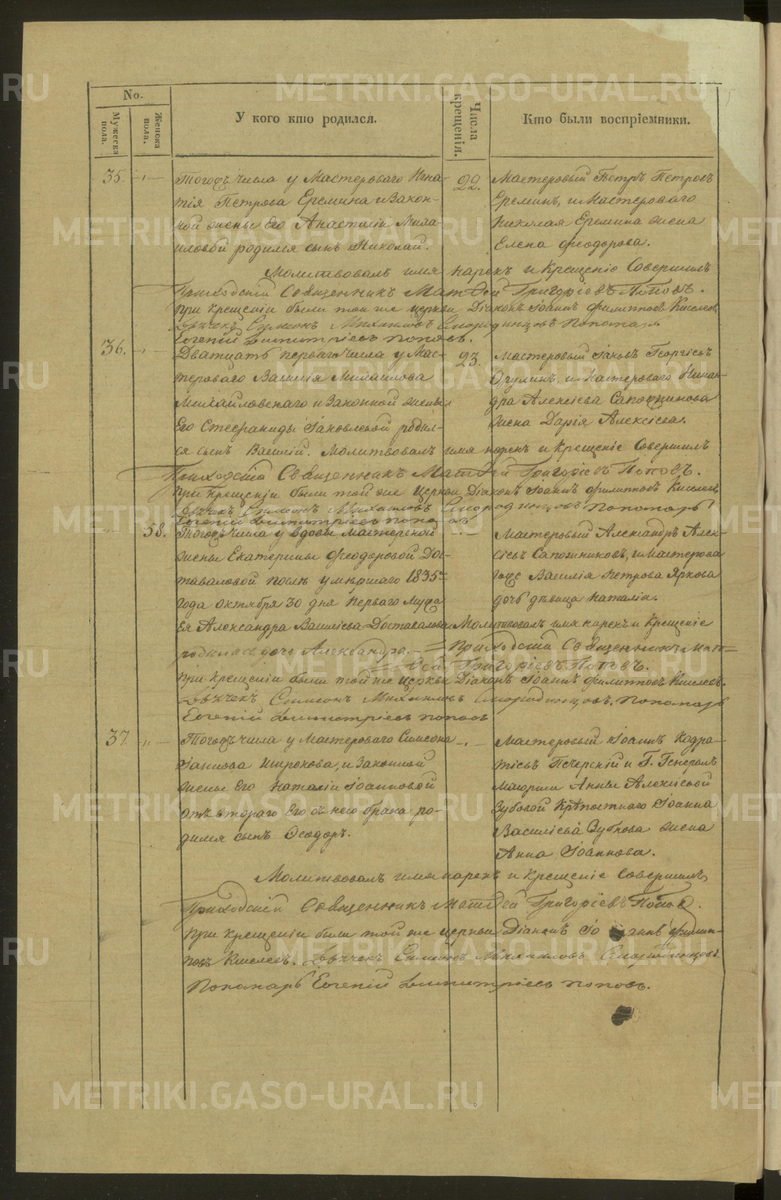 No.
Мужеска пола.
Женска пола.
У кого кто родился.
Числа крещенія.
Кто были воспріемники.
35.
Тогожъ числа у Мастероваго Игна-
тія Петрова Еремина и Закон-
ной жены его Анастасіи Миха-
иловой родился сынъ Николай.
22.
Мастеровый Петръ Петровъ
Ереминъ, и Мастероваго
Николая Еремина жена
Елена Феодорова.
Молитвовалъ имя нарекъ и Крещеніе Совершилъ
Приходскій Священникъ Матѳей Григоріевъ Поповъ.
При крещеніи были той же церкви Діаконъ Іоаннъ Филипповъ Киселевъ
Дьячекъ Симеонъ Михаиловъ Смородинцовъ Пономарь
Евгеній Димитріевъ Поповъ.
36.
Двадцать перваго числа у Мас-
тероваго Василія Михаилова
Михайловскаго и Законной жены
Его Стефаниды Іаковлевой родил-
ся сынъ Василій.
23.
Мастеровый Іаковъ Георгіевъ
и Мастероваго
Алексіева Сапожникова
жена Дарія Алексіева.
Молитвовалъ имя нарекъ и Крещеніе Совершилъ
Приходскій Священникъ Матѳей Григоріевъ Поповъ.
При Крещеніи были той же Церкви Діаконъ Іоаннъ Филипповъ Киселевъ
Дьячекъ Симеонъ Михаиловъ Смородинцовъ Пономарь
Евгеній Димитріевъ Поповъ
58.
Тогожъ числа у вдовы Мастерской
жены Екатерины Феодоровой Дос-
таваловой послѣ умершаго 1835го
года октября 30 дня перваго мужа
ея Александра Василіева Доставалова
родилась дочь Александра.
Мастеровый Александръ Алек-
сіевъ Сапожниковъ, и Мастерова
Василія Петрова Яркова
дочь дѣвица Наталія.
Молитвовалъ имя нарекъ и Крещеніе
Приходскій Священникъ Мат-
ѳей Григоріевъ Поповъ.
При крещеніи были той же церкви Діаконъ Іоаннъ Филипповъ Киселевъ.
Дьячекъ Симеонъ Михаиловъ Смородинцовъ. Пономарь
Евгеній Димитріевъ Поповъ
37.
Тогожъ числа у Мастероваго Симеона
Широкова, и Законной
жены Его Наталіи Іоанновой
отъ втораго Его съ нею брака ро-
дился сынъ Ѳеодоръ.
Мастеровый Іоаннъ
Печерскій и Г. Генералъ
Маіорши Анны Алексіевой
Зубовой Крѣпостнаго Іоанна
Василіева Зубкова жена
Анна Іоаннова.
Молитвовалъ имя нарекъ и Крещеніе Совершилъ
Приходскій Священникъ Матѳей Григоріевъ Поповъ.
При крещеніи были той же церкви Діаконъ Іоаннъ Филип-
повъ Киселевъ. Дьячекъ Симеонъ Михаиловъ Смородинцовъ
Пономарь Евгеній Димитріевъ Поповъ.
METRIKI.GASO-URAL.RU